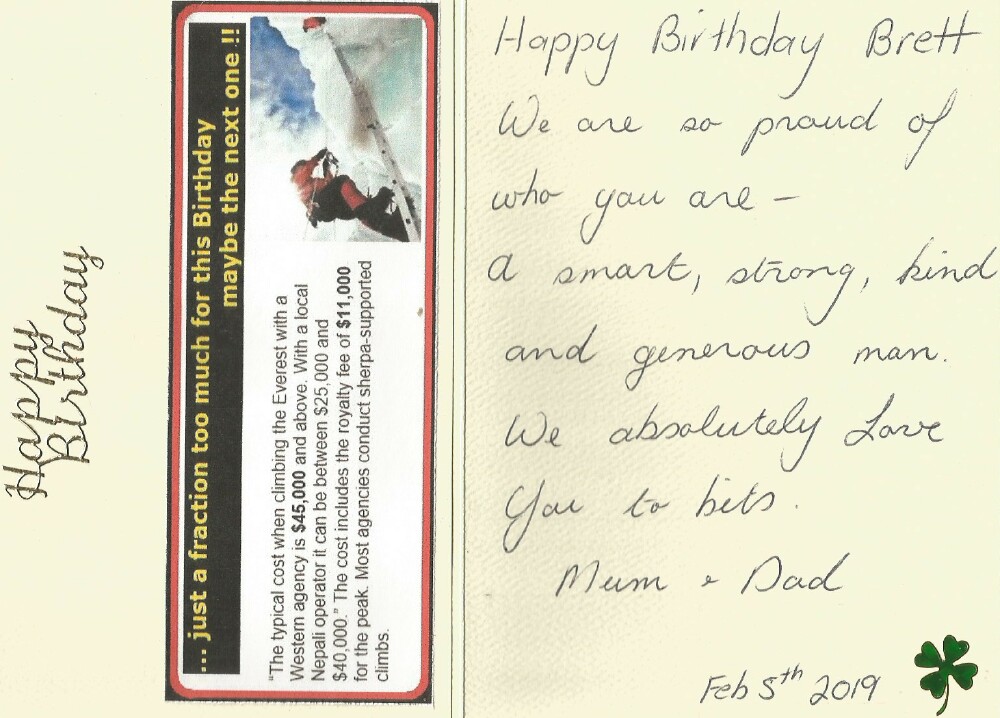 Happy
Birthday
... just a fraction too much for this Birthday
maybe the next one !!
"The typical cost when climbing the Everest with a
Western agency is $45,000 and above. With a local
Nepali operator it can be between $25,000 and
$40,000." The cost includes the royalty fee of $11,000
for the peak. Most agencies conduct sherpa-supported
climbs.
Happy Birthday Brett
We are so proud of
who you are –
a smart, strong, kind
and generous man.
We absolutely Love
You to bits.
Mum & Dad
Feb 5th 2019